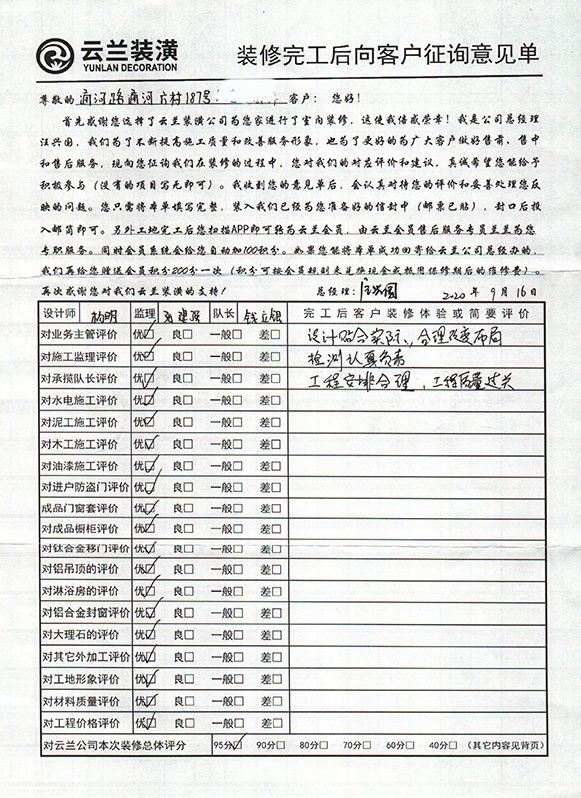 云兰装潢
YUNLAN DECORATION
装修完工后向客户征询意见单
尊敬的 通河路通河六村187号 客户：您好！
首先感谢您选择了云兰装潢公司为您家进行了室内装修，这使我倍感荣幸！我是公司总经理
汪兴国，我们为了不断提高施工质量和改善服务形象，也为了更好的为广大客户做好售前、售中
和售后服务，现向您征询我们在装修的过程中，您对我们的对应评价和建议，真诚希望您能给予
积极参与（没有的项目写无即可）。我收到您的意见单后，会认真对待您的评价和妥善处理您反
映的问题。您只需将本单填写完整，装入我们已经为您准备好的信封中（邮票已贴），封口后投
入邮筒即可。另外工地完工后您扫描APP即可转为云兰会员，由云兰会员售后服务专员兰兰为您
专职服务。同时会员系统会给您自动加100积分。如果您能将本单成功回寄给云兰公司总经办的，
我们再给您赠送会员积分200分一次（积分可按会员规则来兑换现金或抵用保修期后的维修费）。
再次感谢您对我们云兰装潢的支持！ 总经理： 2020年9月16日
设计师 杨明 监理 建强 队长 钱立银 完工后客户装修体验或简要评价
对业务主管评价 优☑ 良□ 一般□ 差□ 设计贴合实际、合理改变布局
对施工监理评价 优☑ 良□ 一般□ 差□ 检测认真负责
对承揽队长评价 优☑ 良□ 一般□ 差□ 工程安排合理、工程质量过关
对水电施工评价 优☑ 良□ 一般□ 差□
对泥工施工评价 优☑ 良□ 一般□ 差□
对木工施工评价 优☑ 良□ 一般□ 差□
对油漆施工评价 优☑ 良□ 一般□ 差□
对进户防盗门评价 优☑ 良□ 一般□ 差□
成品门窗套评价 优☑ 良□ 一般□ 差□
对成品橱柜评价 优☑ 良□ 一般□ 差□
对钛合金移门评价 优☑ 良□ 一般□ 差□
对铝吊顶的评价 优☑ 良□ 一般□ 差□
对淋浴房的评价 优☑ 良□ 一般□ 差□
对铝合金封窗评价 优☑ 良□ 一般□ 差□
对大理石的评价 优☑ 良□ 一般□ 差□
对其它外加工评价 优☑ 良□ 一般□ 差□
对工地形象评价 优☑ 良□ 一般□ 差□
对材料质量评价 优☑ 良□ 一般□ 差□
对工程价格评价 优☑ 良□ 一般□ 差□
对云兰公司本次装修总体评分 95分☑ 90分□ 80分□ 70分□ 60分□ 40分□ （其它内容见背页）